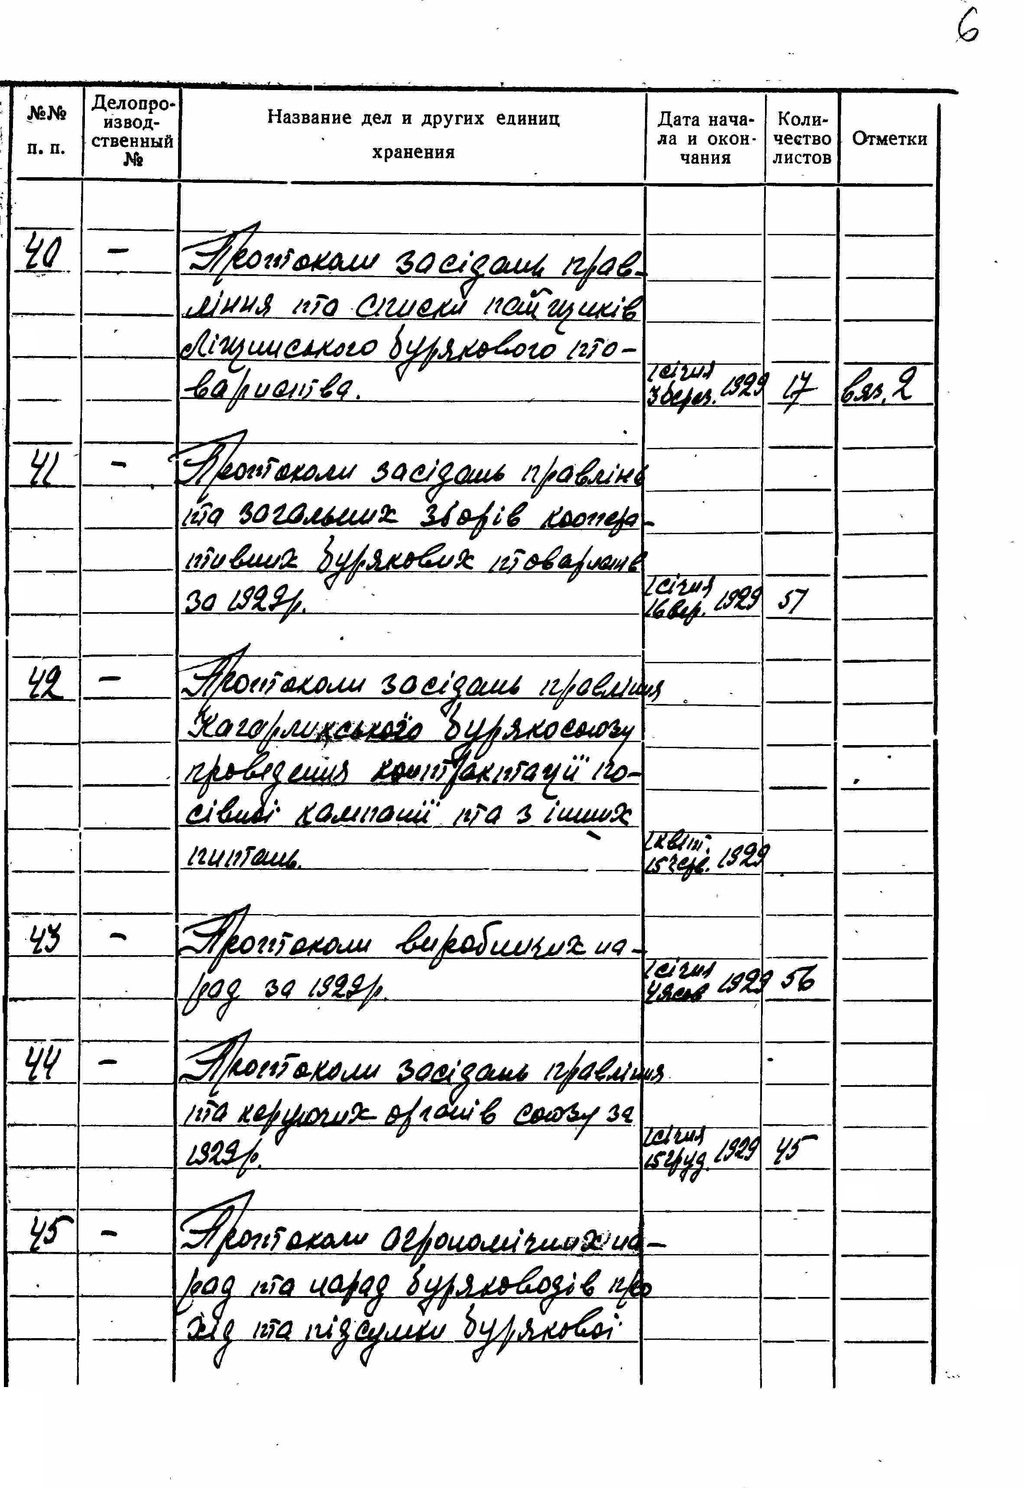 6
№№ п. п.
Делопро-
извод-
ственный
№
Название дел и других единиц
хранения
Дата нача-
ла и окон-
чания
Коли-
чество
листов
Отметки
40 - Протоколи засідань прав-
ління та списки пайщиків
Ліщинського бурякового то-
вариства. 1 січня 3 берез. 1929 17 вяз. 2
41 - Протоколи засідань правлінь
та загальних зборів коопера-
тивних бурякових товариств
за 1929р. 1 січня 16 вер. 1929 51
42 - Протоколи засідань правління
Кагарликського бурякосоюзу
проведення контрактації по-
сівної кампанії та з інших
питань. 1 квіт. 15 черв. 1929
43 - Протоколи виробничих на-
рад за 1929р. 1 січня 4 жов 1929 56
44 - Протоколи засідань правління
та керуючих органів союзу за
1929р. 1 січня 15 груд. 1929 45
45 - Протоколи агрономічних на-
рад та нарад буряководів про
хід та підсумки бурякової